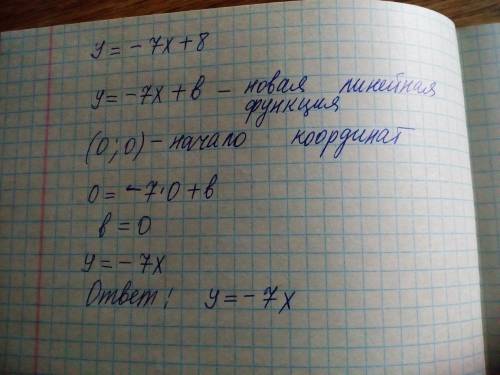 y = - 7x + 8
y = - 7x + в - новая линейная
функция
(0; 0) - начало координат
0 = - 7·0 + в
в = 0
y = - 7x
Ответ: y = - 7x